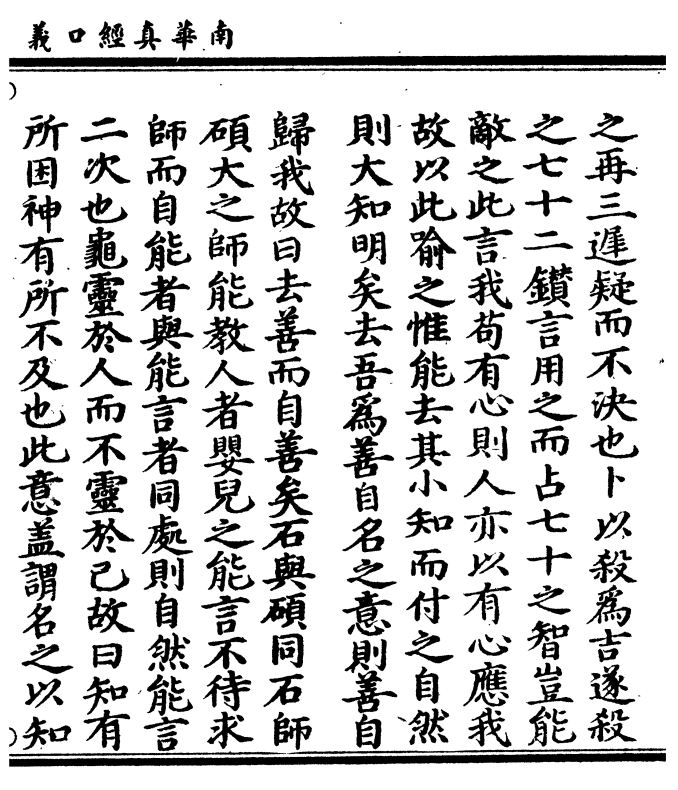 南華真經口義
之再三遲疑而不決也卜以殺爲吉遂殺
之七十二鑚言用之而占七十之智豈能
敵之此言我苟有心則人亦以有心應我
故以此喻之惟能去其小知而付之自然
則大知明矣去吾爲善自名之意則善自
歸我故曰去善而自善矣石與碩同石師
碩大之師能教人者嬰兒之能言不待求
師而自能者與能言者同處則自然能言
二次也龜靈於人而不靈於己故曰知有
所困神有所不及也此意盖謂名之以知